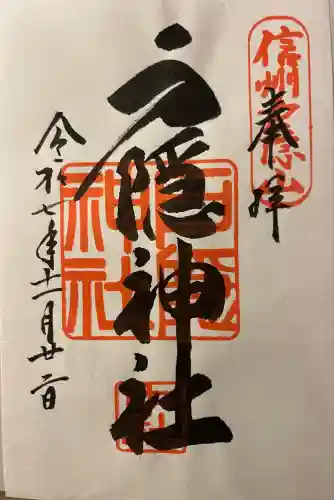 信州戸隠山
奉拝
戸隠神社
戸隠
神社
令和七年十一月廿二日